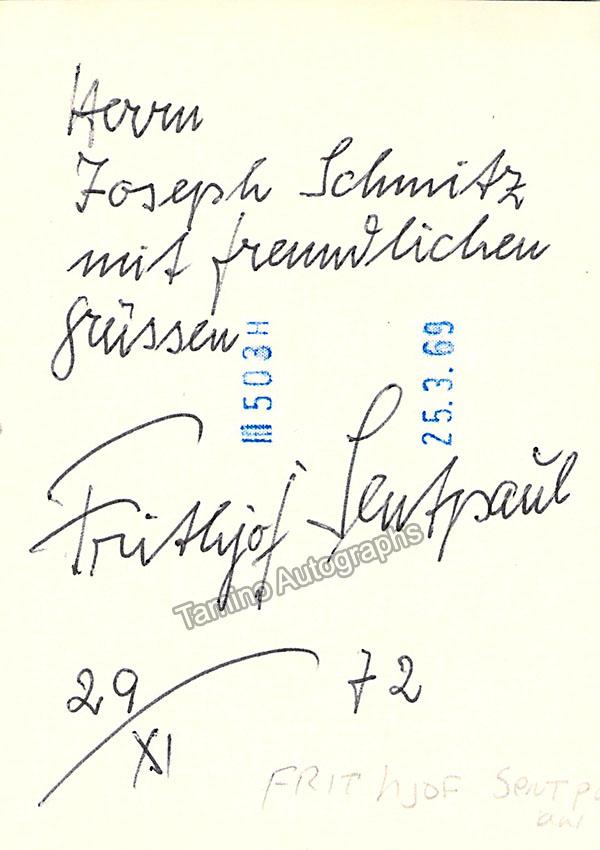 Herrn
Joseph Schmitz
mit freundlichen
Grüssen
III 503H
25.3.69
Frithjof Sentpaul
Tamino Autographs
29/XI 72
FRITHJOF SENTPAUL